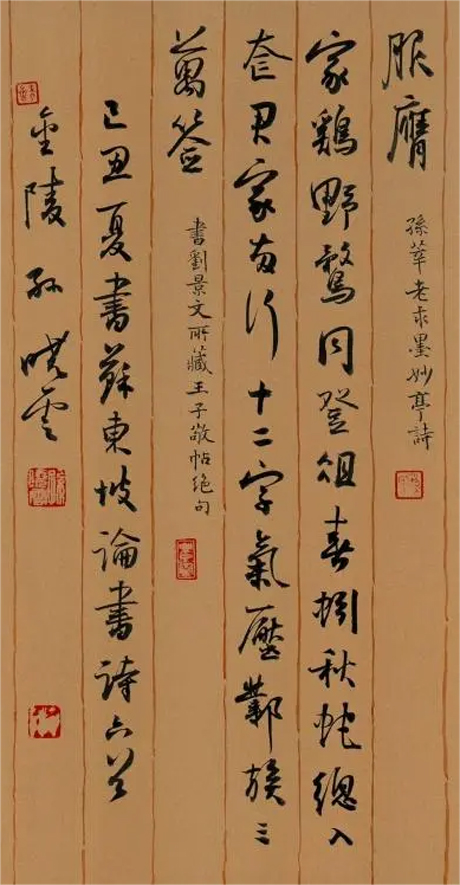 服膺 孫莘老求墨妙亭詩
家鷄野鶩同登俎春蚓秋蛇總入
奁君家兩行十二字氣壓鄴侯三
萬签 書劉景文所藏王子敬帖絕句
己丑夏書蘇東坡論書詩六首
金陵孙曉雲